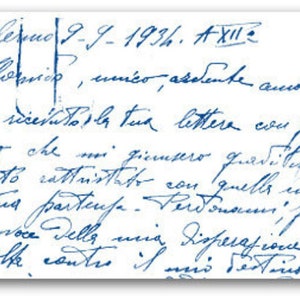 lermo 9-9-1934. A XIIº
unico, ardente amo
ricevuto la tua lettera con
to che mi giunsero graditi
to rattristato con quella
tua partenza - Perdonami
voce della mia disperazione
contro il mio destino